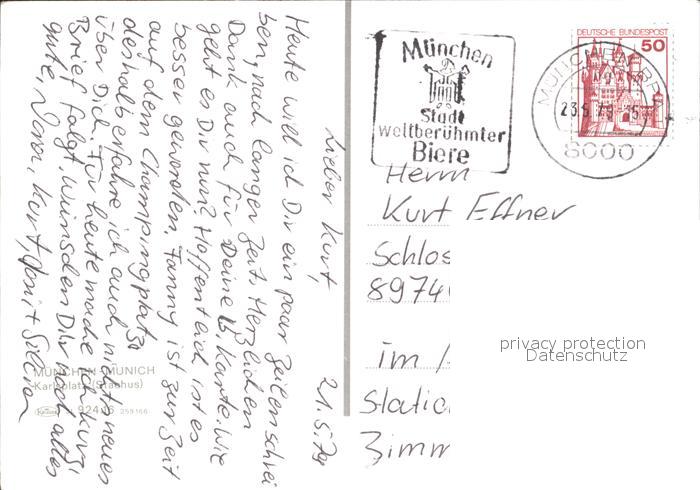 21.5.79
Lieber Kurt,
Heute will ich Dir ein paar Zeilen schrei
ben, nach langer Zeit. Herzlichen
Dank auch für Deine lb. Karte. Wie
geht es Dir nun? Hoffentlich ist es
besser geworden. Fanny ist zur Zeit
auf dem Champingplatz,
deshalb erfahre ich auch nichts neues
über Dich. Für heute mache ich kurz,
Brief folgt. Wünschen Dir noch alles
gute, Kurt,
MÜNCHEN - MUNICH
Karlsplatz (Stachus)
Krüger 924 6 259166
München
Stadt
weltberühmter
Biere
DEUTSCHE BUNDESPOST
50
MÜNCHEN BPA
23.5.79-15
8000
Herrn
Kurt Effner
Schlos
8974
im
Statio
Zimm
privacy protection
Datenschutz